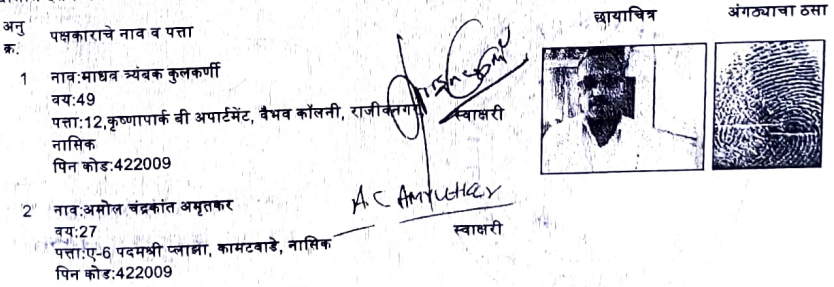 अनु क्र. पक्षकाराचे नाव व पत्ता छायाचित्र अंगठ्याचा ठसा
1 नाव:माधव त्र्यंबक कुलकर्णी
वय:49
पत्ता:12,कृष्णापार्क बी अपार्टमेंट, वैभव कॉलनी, राजीवनगर
नासिक
पिन कोड:422009
स्वाक्षरी
2 नाव:अमोल चंद्रकांत अमृतकर
वय:27
पत्ता:ए-6 पदमश्री प्लाझा, कामटवाडे, नासिक
पिन कोड:422009
स्वाक्षरी